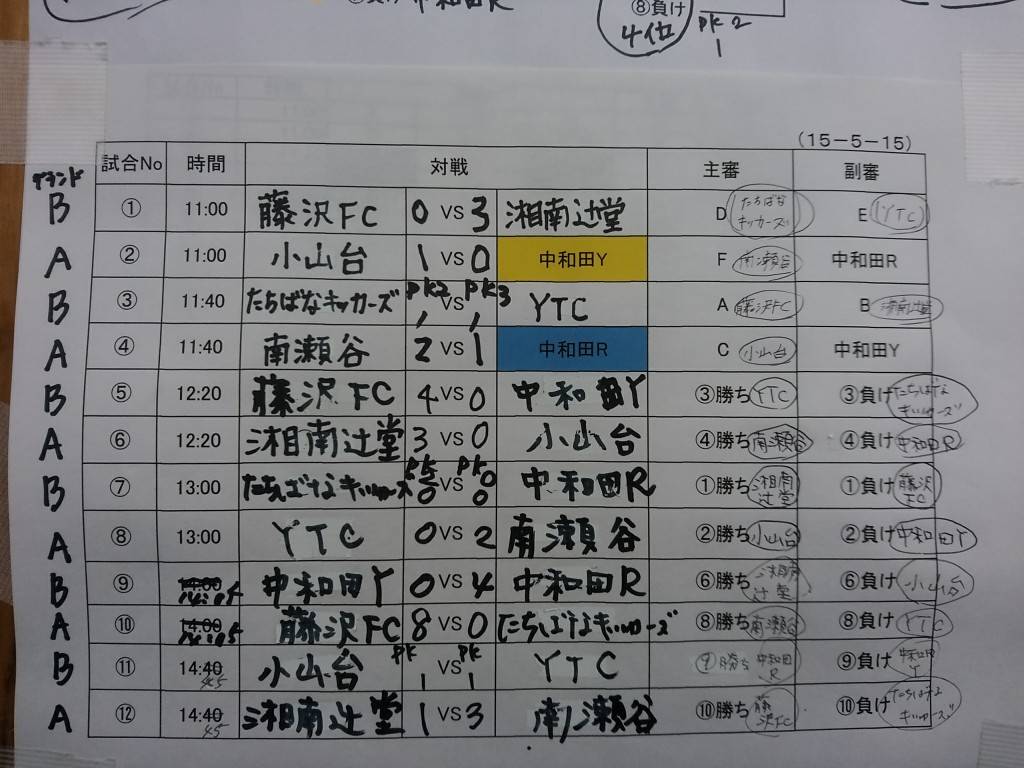 ⑧負け
4位
PK 2
1
(15-5-15)
グランド 試合No 時間 対戦 主審 副審
B ① 11:00 藤沢FC 0 VS 3 湘南辻堂 D たちばなキッカーズ E YTC
A ② 11:00 小山台 1 VS 0 中和田Y F 南瀬谷 中和田R
B ③ 11:40 たちばなキッカーズ PK2 1 VS PK3 1 YTC A 藤沢FC B 湘南辻堂
A ④ 11:40 南瀬谷 2 VS 1 中和田R C 小山台 中和田Y
B ⑤ 12:20 藤沢FC 4 VS 0 中和田Y ③勝ち YTC ③負け たちばなキッカーズ
A ⑥ 12:20 湘南辻堂 3 VS 0 小山台 ④勝ち 南瀬谷 ④負け 中和田R
B ⑦ 13:00 たちばなキッカーズ PK 0 VS PK 0 中和田R ①勝ち 湘南辻堂 ①負け 藤沢FC
A ⑧ 13:00 YTC 0 VS 2 南瀬谷 ②勝ち 小山台 ②負け 中和田Y
B ⑨ 14:00 14:05 中和田Y 0 VS 4 中和田R ⑥勝ち 湘南辻堂 ⑥負け 小山台
A ⑩ 14:00 14:05 藤沢FC 8 VS 0 たちばなキッカーズ ⑧勝ち 南瀬谷 ⑧負け YTC
B ⑪ 14:40 45 小山台 PK 1 VS PK 1 YTC ⑨勝ち 中和田R ⑨負け 中和田Y
A ⑫ 14:40 45 湘南辻堂 1 VS 3 南瀬谷 ⑩勝ち 藤沢FC ⑩負け たちばなキッカーズ